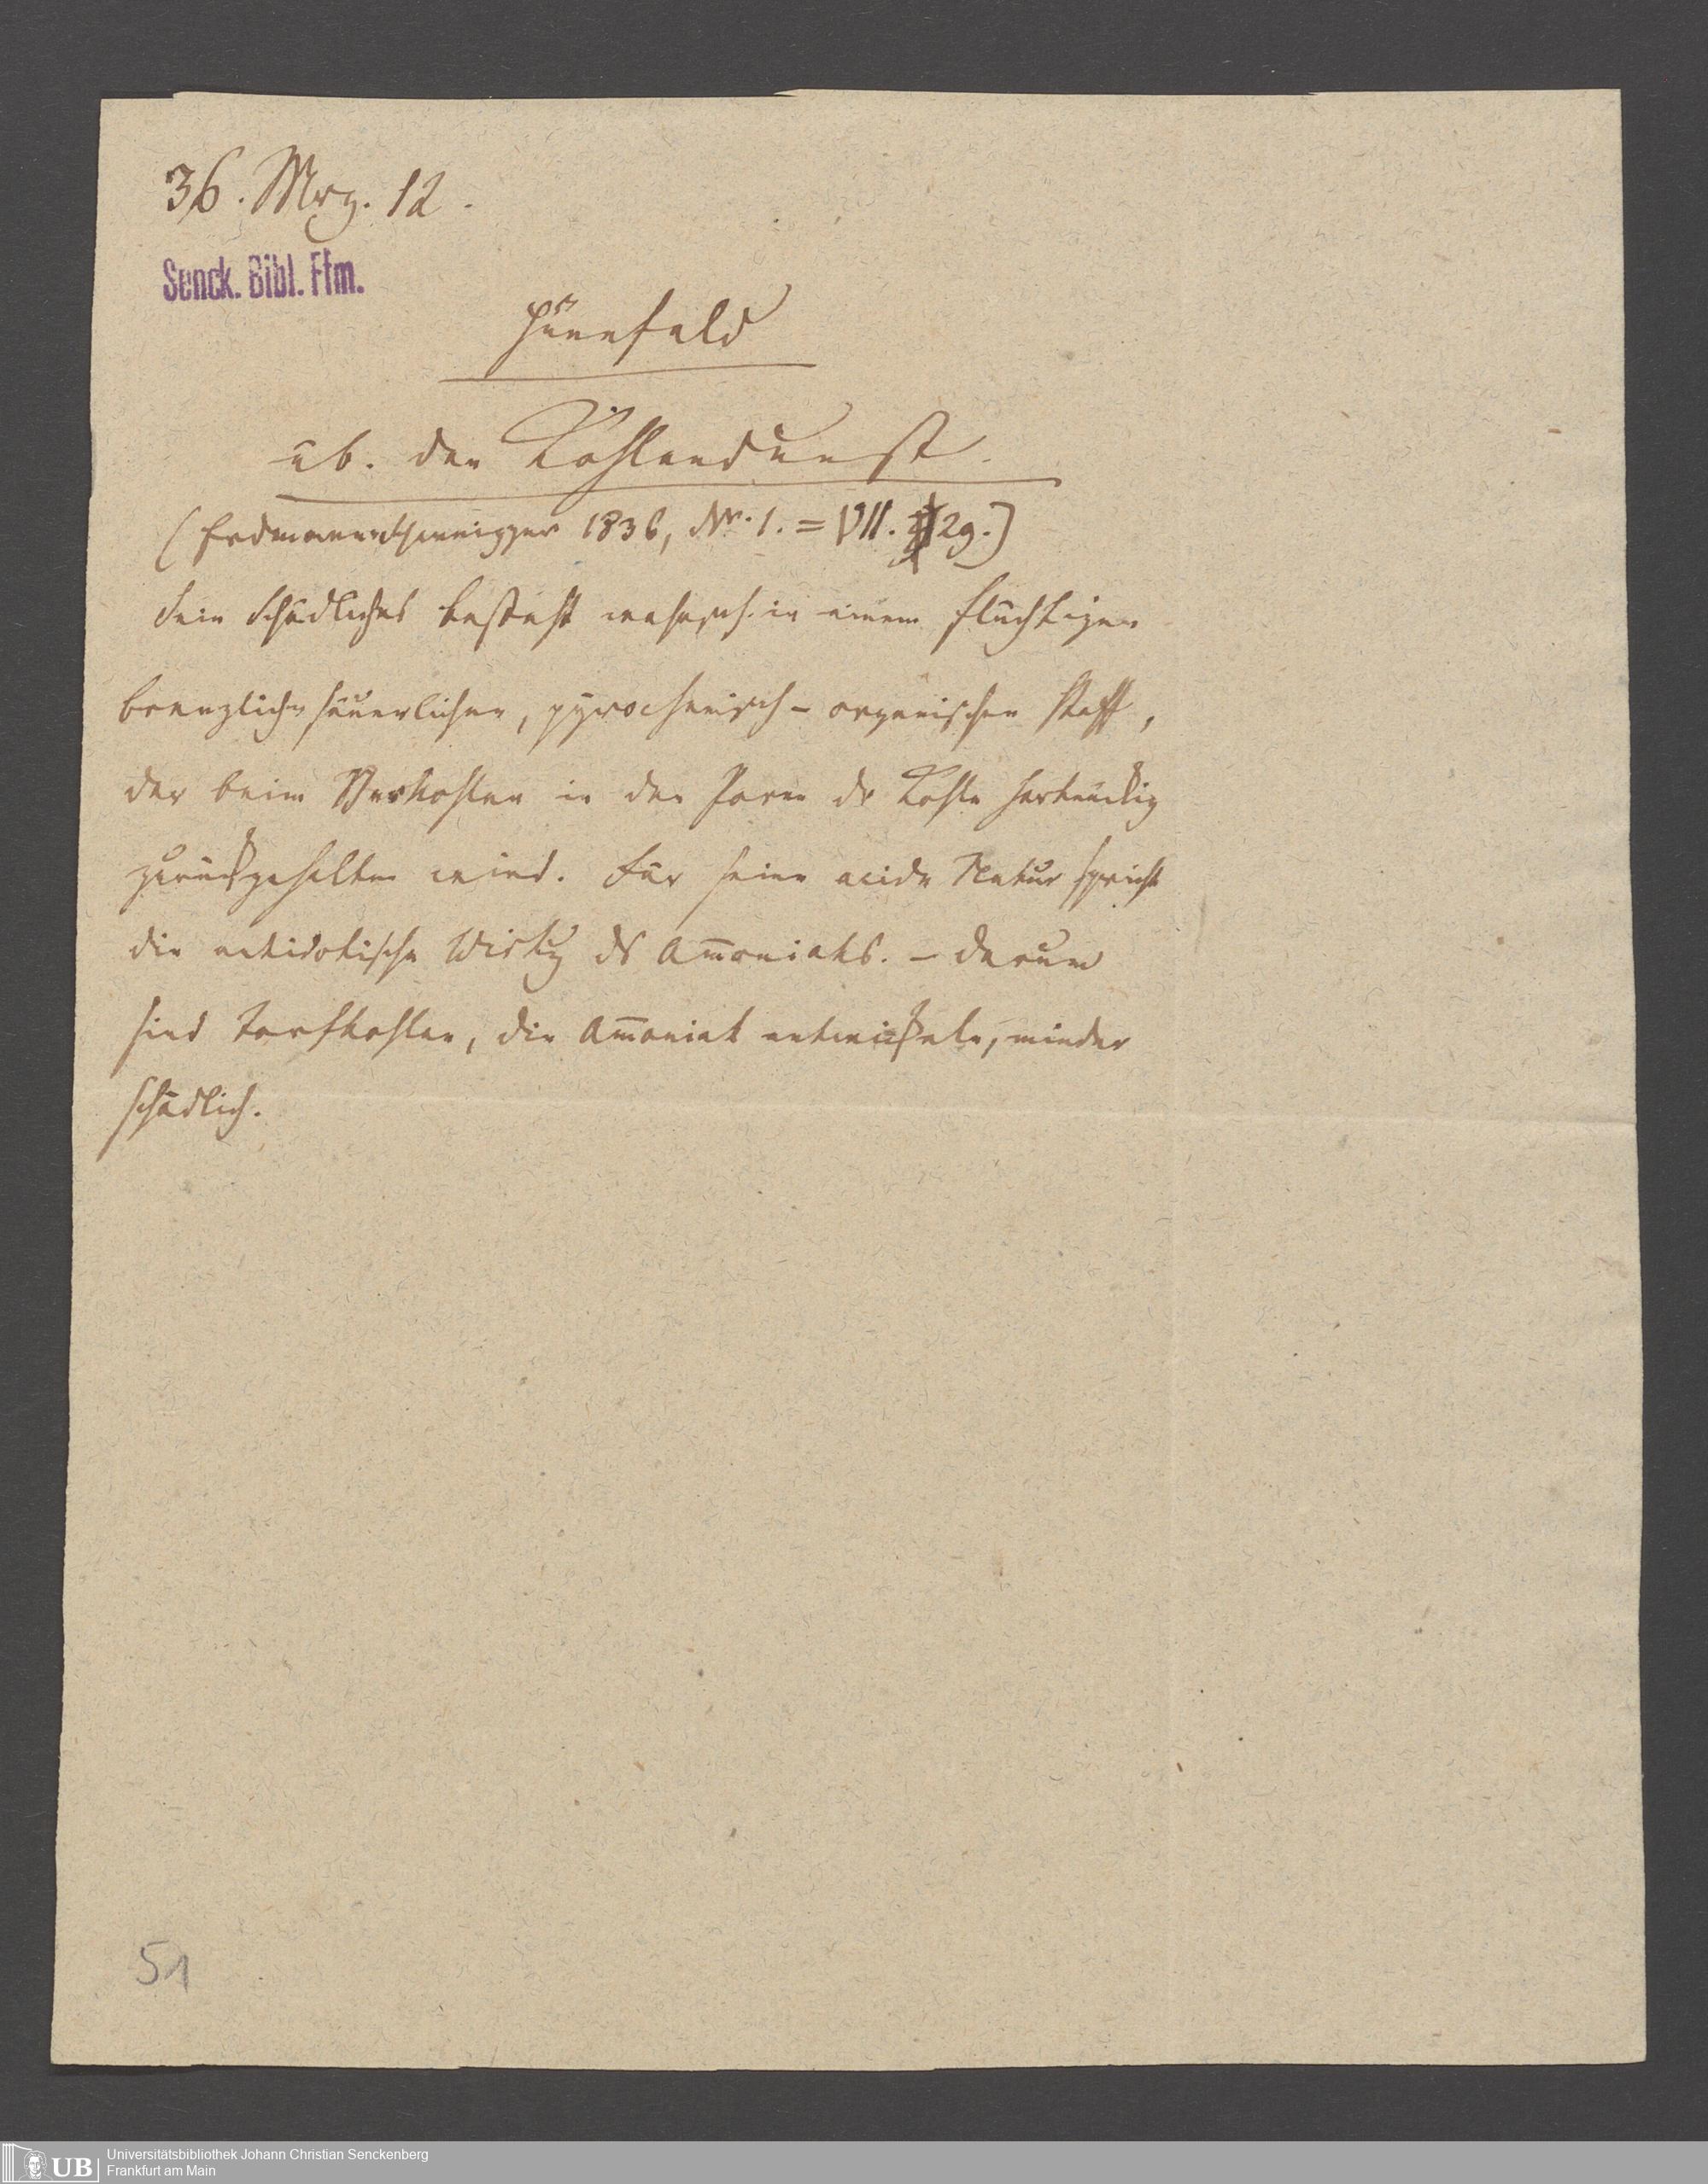 36. Mrz. 12.
Senck. Bibl. Ffm.
Hünefeld
üb. den Kohlendunst.
(Erdmann Schweigger 1836, Nr. 1. = VII. 29.)
Sein Schädliches besteht wahrsch. in einem flüchtigen
brenzlich säuerlichen, pyrochemisch-organischen Stoff,
der beim Verkohlen in den Poren dr Kohle hartnäckig
zurückgehalten wird. Für seine acide Natur spricht
die antidotische Wirkg ds Am̄oniaks. – Darum
sind Torfkohlen, die Am̄oniak entwickeln, minder
schädlich.
51
UB
Universitätsbibliothek Johann Christian Senckenberg
Frankfurt am Main